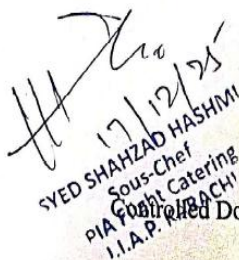 17/12/25
SYED SHAHZAD HASHMI
Sous-Chef
PIA Flight Catering
J.I.A.P. KARACHI
Controlled Do